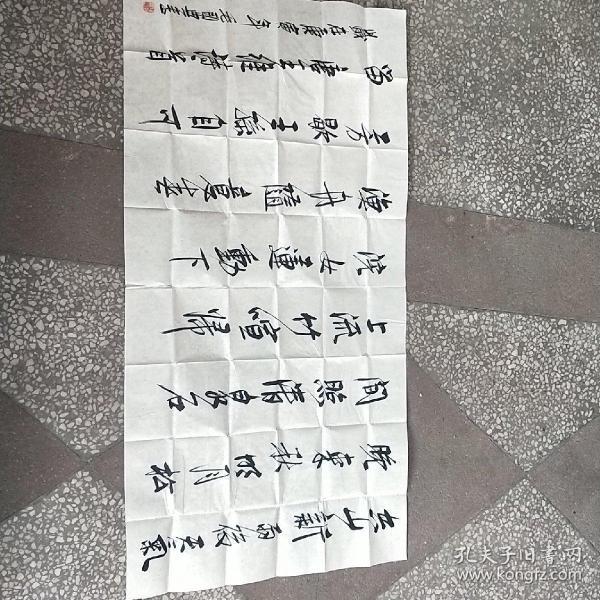 空山新雨後天氣
晚來秋明月松
間照清泉石
上流竹喧歸
浣女蓮動下
漁舟隨意春
芳歇王孫自可
留 唐王維詩一首
歲在庚寅年
孔夫子旧书网
www.kongfz.com